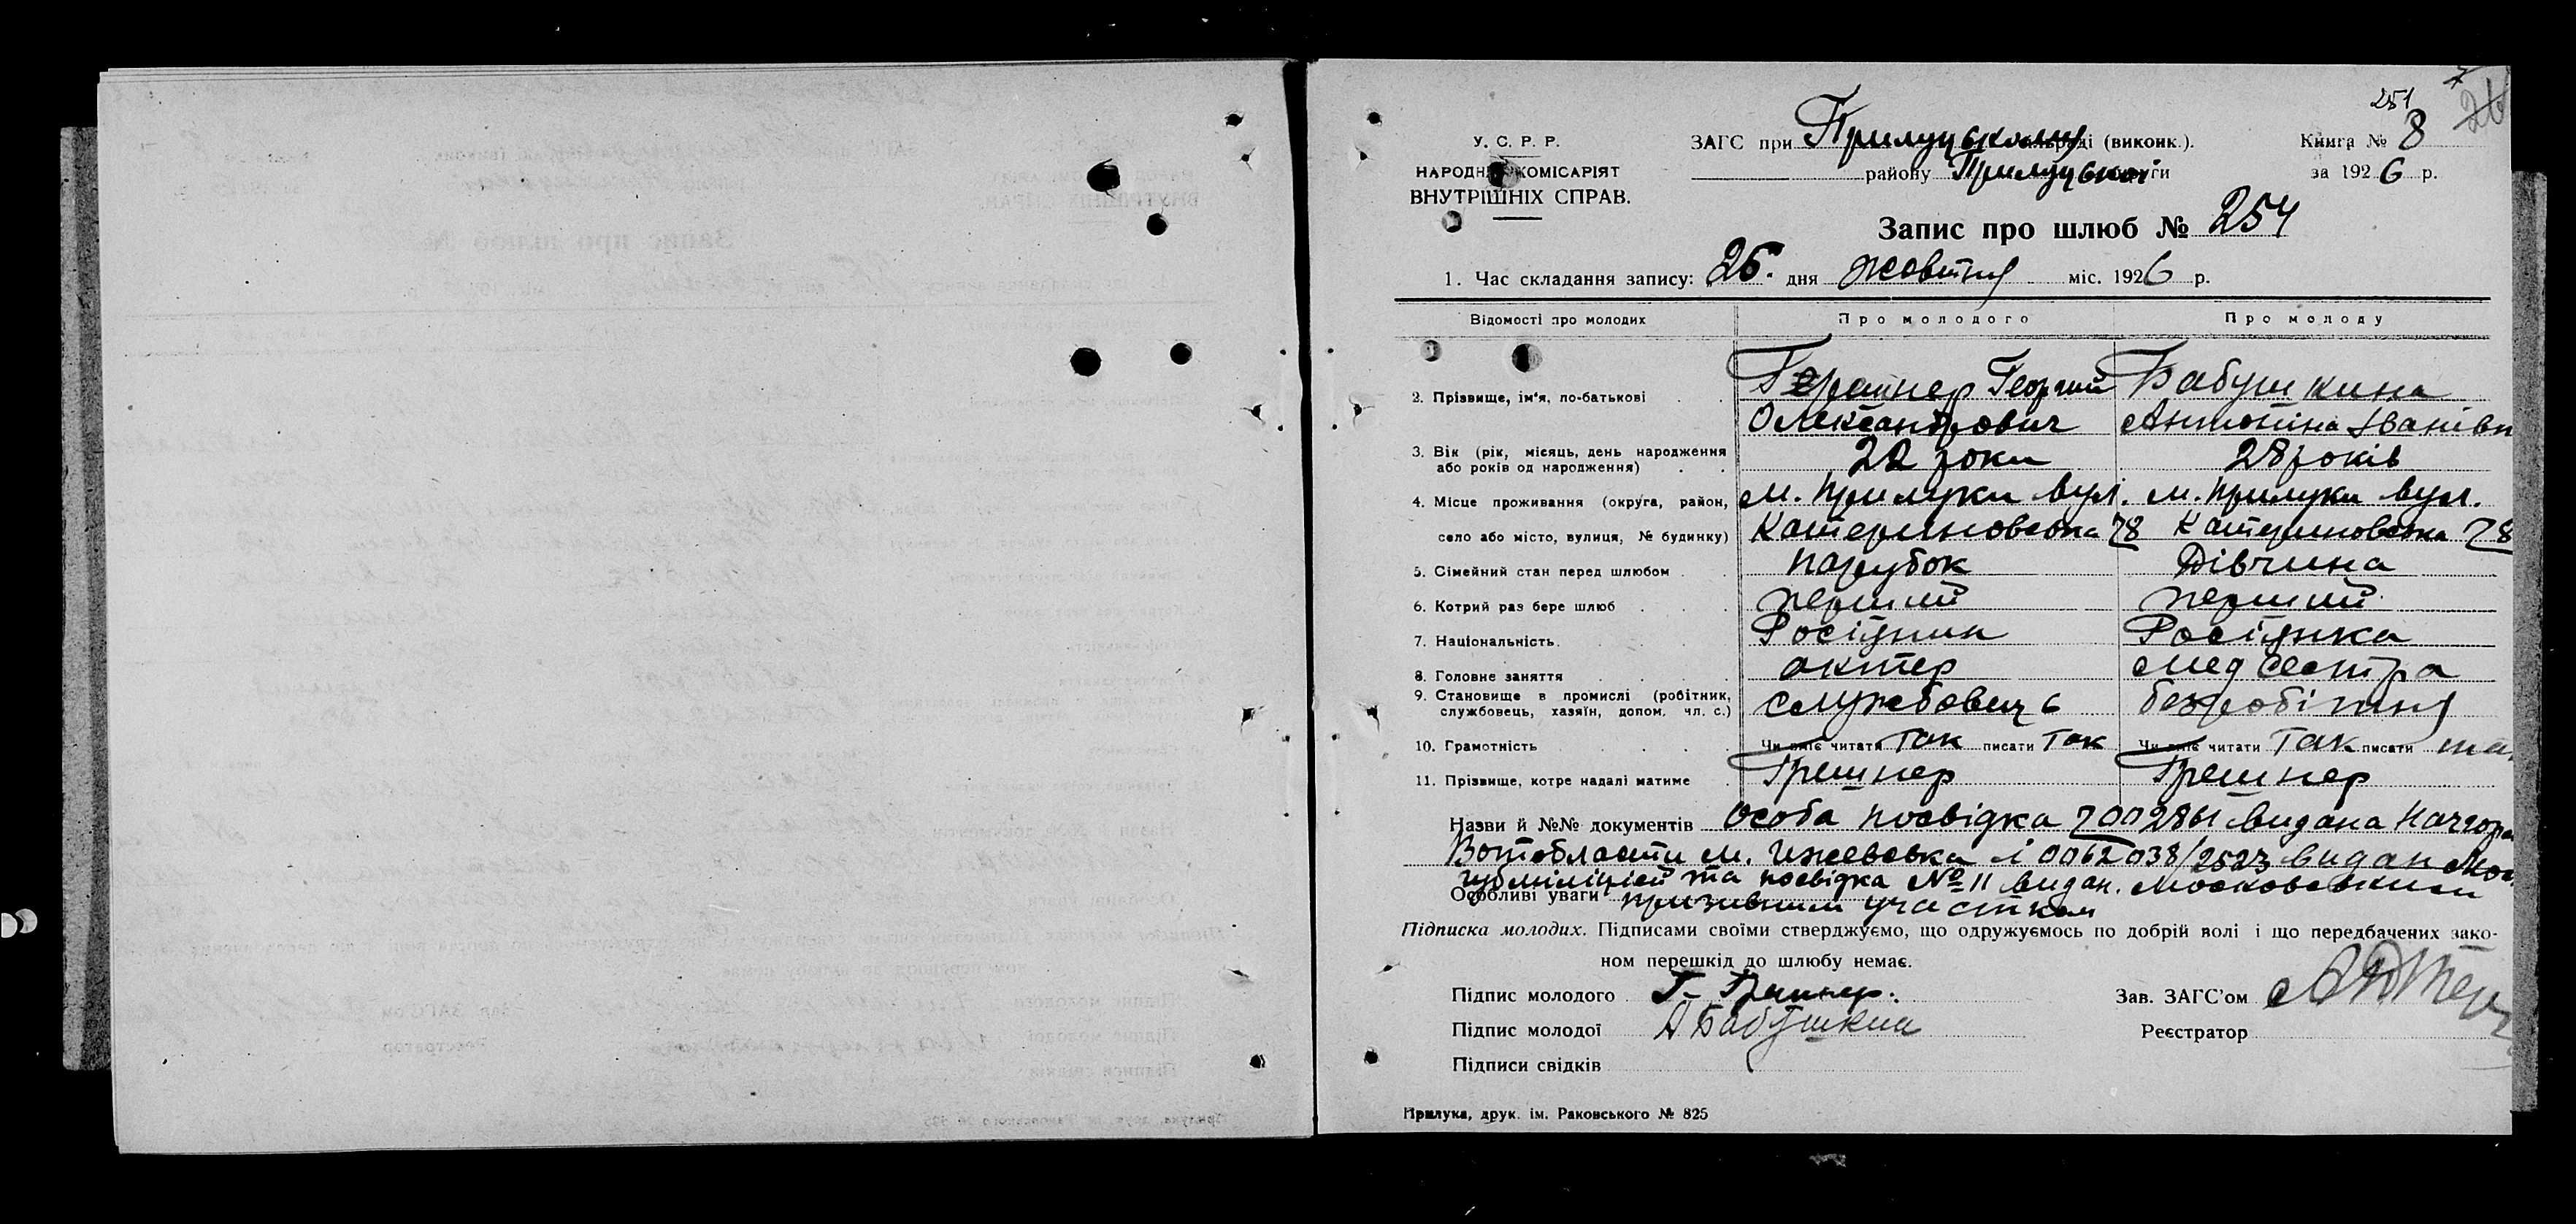 251
26
У. С. Р. Р.
НАРОДНИЙ КОМІСАРІЯТ
ВНУТРІШНІХ СПРАВ.
ЗАГС при Прилуцькому (виконк.).
району Прилуцької округи
Книга № 8
за 1926 р.
Запис про шлюб № 254
1. Час складання запису: 26. дня жовтня міс. 1926 р.
Відомості про молодих Про молодого Про молоду
2. Прізвище, ім'я, по-батькові Георгий Бабушкина
Олександрович Антоніна Іванівн
3. Вік (рік, місяць, день народження
або років од народження) 22 роки 28 років
4. Місце проживання (округа, район, м. Прилуки вул. м. Прилуки вул.
село або місто, вулиця, № будинку) Катериновська 78 Катериновська 78
5. Сімейний стан перед шлюбом парубок Дівчина
6. Котрий раз бере шлюб перший перший
7. Національність Росіянин Росіянка
8. Головне заняття актер медсестра
9. Становище в промислі (робітник,
службовець, хазяїн, допом. чл. с.) службовець безробітня
10. Грамотність Чи вміє читати так писати так Чи вміє читати так писати та
11. Прізвище, котре надалі матиме Грешнер Грешнер
Назви й №№ документів Особа посвідка видана
Вотобласти м. Ижевська і 0062038/2523 видан
губміліцієй та посвідка № 11 видан. Московським
Особливі уваги призивним участком
Підписка молодих. Підписами своїми стверджуємо, що одружуємось по добрій волі і що передбачених зако-
ном перешкід до шлюбу немає.
Підпис молодого Г. Грешнер. Зав. ЗАГС'ом
Підпис молодої А Бабушкина Реєстратор
Підписи свідків
Прилука, друк. ім. Раковського № 825